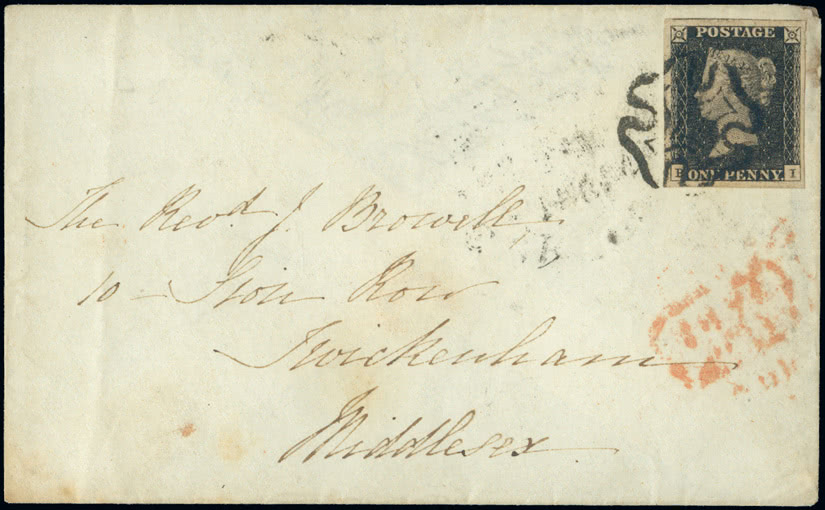 POSTAGE
ONE PENNY.
I
The Revd. J. Browell
10 – Row
Twickenham
Middlesex